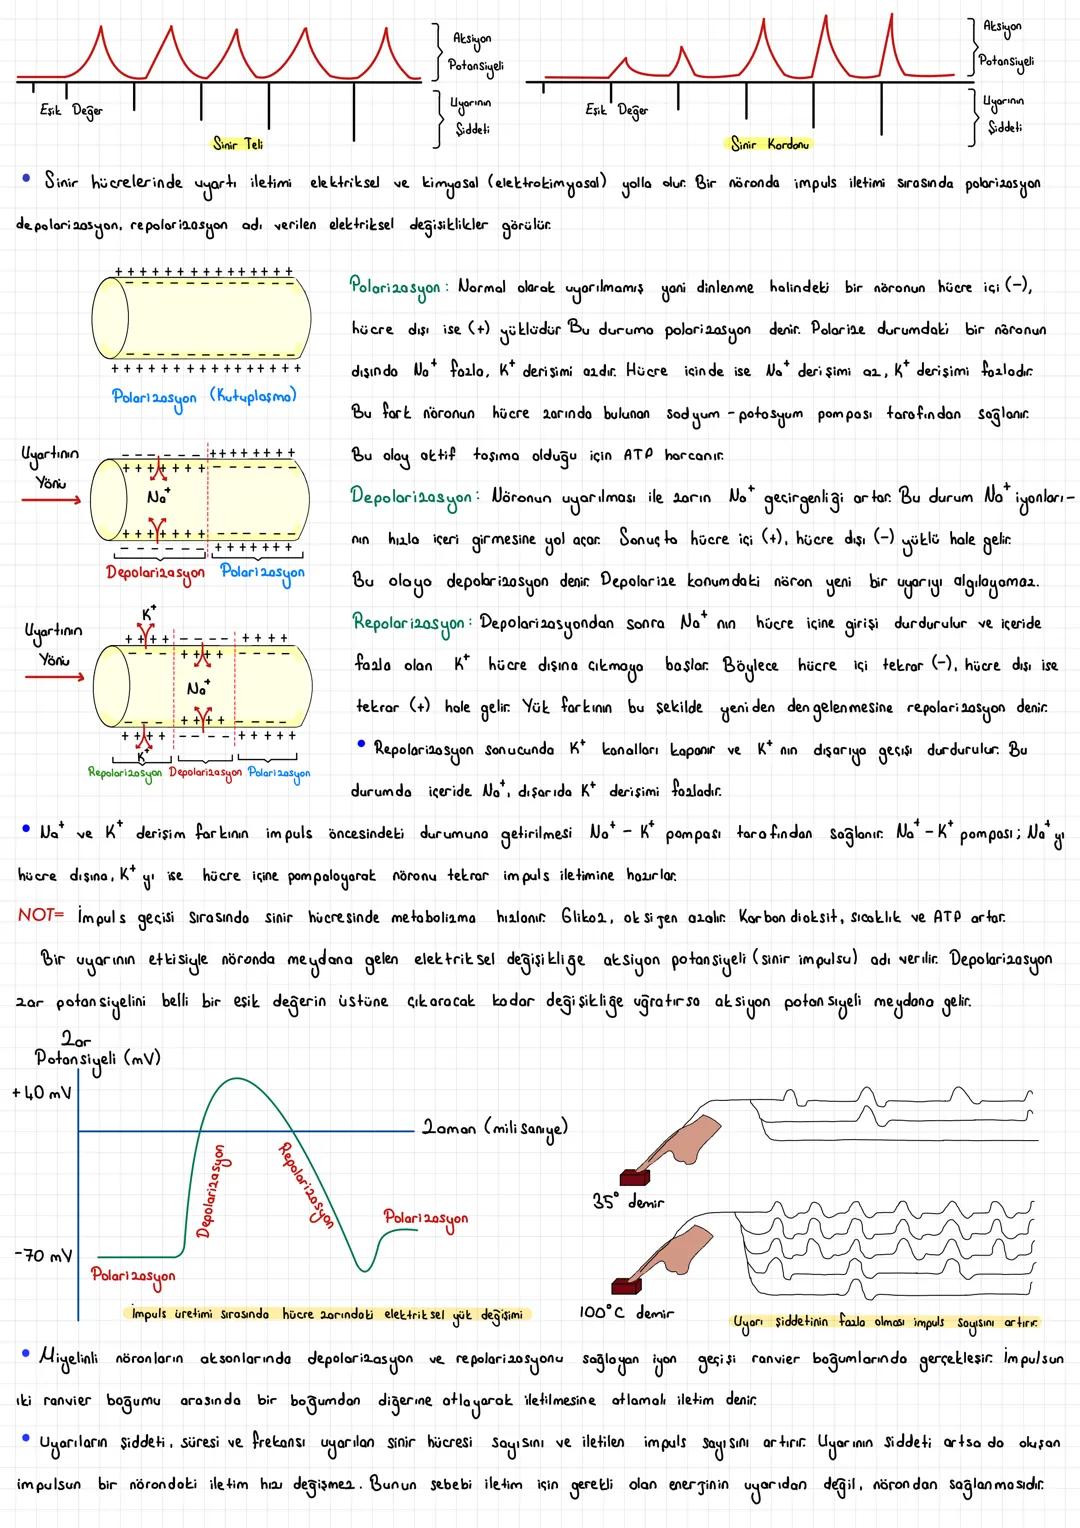 Aksiyon
Potansiyeli
Uyarının
Şiddeti
Eşik Değer
Sinir Teli
Aksiyon
Potansiyeli
Uyarının
Şiddeti
Eşik Değer
Sinir Kordonu
• Sinir hücrelerinde uyartı iletimi elektriksel ve kimyasal (elektrokimyasal) yolla olur. Bir nöronda impuls iletimi sırasında polarizasyon
depolarizasyon, repolarizasyon adı verilen elektriksel değişiklikler görülür.
Polarizasyon (Kutuplaşma)
Polarizasyon: Normal olarak uyarılmamış yani dinlenme halindeki bir nöronun hücre içi (-),
hücre dışı ise (+) yüklüdür Bu duruma polarizasyon denir. Polarize durumdaki bir nöronun
dışında Na+ fazla, K+ derişimi azdır. Hücre içinde ise Na+ derişimi az, K+ derişimi fazladır.
Bu fark nöronun hücre zarında bulunan sodyum - potasyum pompası tarafından sağlanır.
Bu olay aktif taşıma olduğu için ATP harcanır.
Uyartının
Yönü
Na+
Depolarizasyon Polarizasyon
Depolarizasyon: Nöronun uyarılması ile zarın Na+ geçirgenliği artar. Bu durum Na+ iyonları-
nın hızla içeri girmesine yol açar. Sonuçta hücre içi (+), hücre dışı (-) yüklü hale gelir.
Bu olaya depolarizasyon denir. Depolarize konumdaki nöron yeni bir uyarıyı algılayamaz.
Uyartının
Yönü
K+
Na+
K+
Repolarizasyon Depolarizasyon Polarizasyon
Repolarizasyon: Depolarizasyondan sonra Na+ nın hücre içine girişi durdurulur ve içeride
fazla olan K+ hücre dışına çıkmaya başlar. Böylece hücre içi tekrar (-), hücre dışı ise
tekrar (+) hale gelir. Yük farkının bu şekilde yeniden dengelenmesine repolarizasyon denir.
• Repolarizasyon sonucunda K+ kanalları kapanır ve K+ nın dışarıya geçişi durdurulur. Bu
durumda içeride Na+, dışarıda K+ derişimi fazladır.
• Na+ ve K+ derişim farkının impuls öncesindeki durumuna getirilmesi Na+ - K+ pompası tarafından sağlanır. Na+ - K+ pompası; Na+ yı
hücre dışına, K+ yı ise hücre içine pompalayarak nöronu tekrar impuls iletimine hazırlar.
NOT= İmpuls geçişi sırasında sinir hücresinde metabolizma hızlanır. Glikoz, oksijen azalır. Karbondioksit, sıcaklık ve ATP artar.
Bir uyarının etkisiyle nöronda meydana gelen elektriksel değişikliğe aksiyon potansiyeli (sinir impulsu) adı verilir. Depolarizasyon
zar potansiyelini belli bir eşik değerin üstüne çıkaracak kadar değişikliğe uğratırsa aksiyon potansiyeli meydana gelir.
Zar
Potansiyeli (mV)
+40 mV
Zaman (milisaniye)
Depolarizasyon
Repolarizasyon
Polarizasyon
-70 mV
Polarizasyon
İmpuls üretimi sırasında hücre zarındaki elektriksel yük değişimi
35° demir
100°C demir
Uyarı şiddetinin fazla olması impuls sayısını artırır.
• Miyelinli nöronların aksonlarında depolarizasyon ve repolarizasyonu sağlayan iyon geçişi ranvier boğumlarında gerçekleşir. İmpulsun
iki ranvier boğumu arasında bir boğumdan diğerine atlayarak iletilmesine atlamalı iletim denir.
• Uyarıların şiddeti, süresi ve frekansı uyarılan sinir hücresi sayısını ve iletilen impuls sayısını artırır. Uyarının şiddeti artsa da oluşan
impulsun bir nörondaki iletim hızı değişmez. Bunun sebebi iletim için gerekli olan enerjinin uyarıdan değil, nörondan sağlanmasıdır.